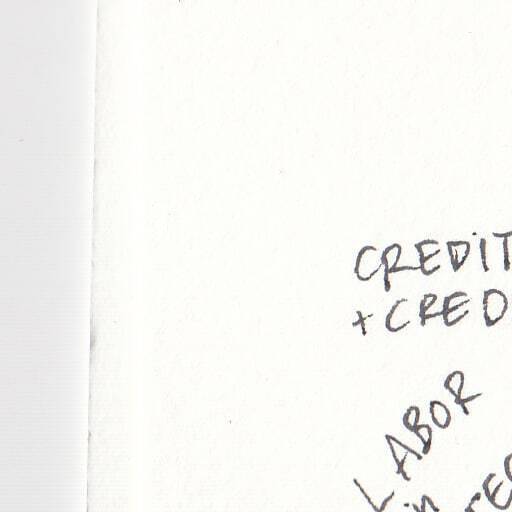 CREDIT
+ CRED
LABOR
in